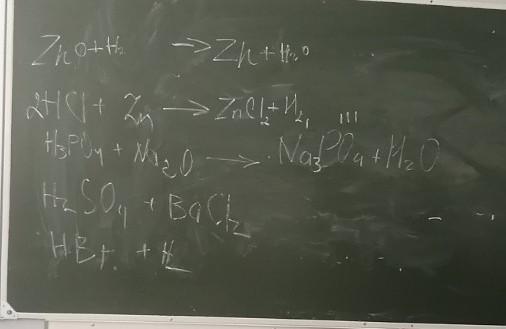 ZnO+H₂ → Zn + H₂O
2HCl + Zn → ZnCl₂+H₂, III
H₃PO₄ + Na₂O → Na₃PO₄+H₂O
H₂SO₄ + BaCl₂
HBr +